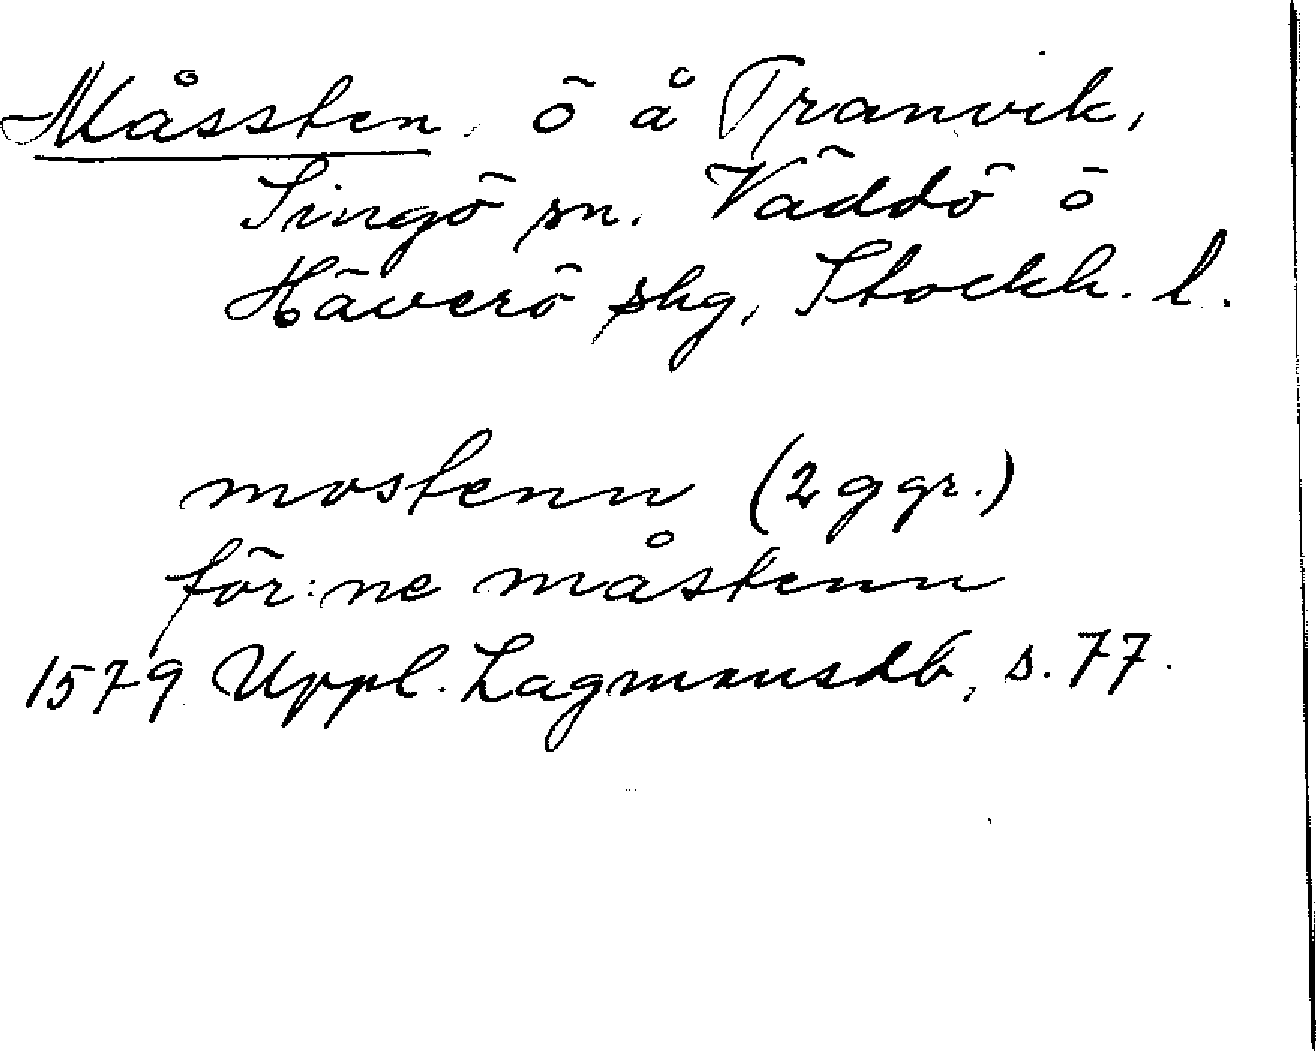 Måssten, ö å Tranvik,
Singö sn. Väddö o
Häverö skg, Stockh. l.
mostenn (2 ggr.)
för:ne måstenn
1579 Uppl. Lagmansdb, s. 77.